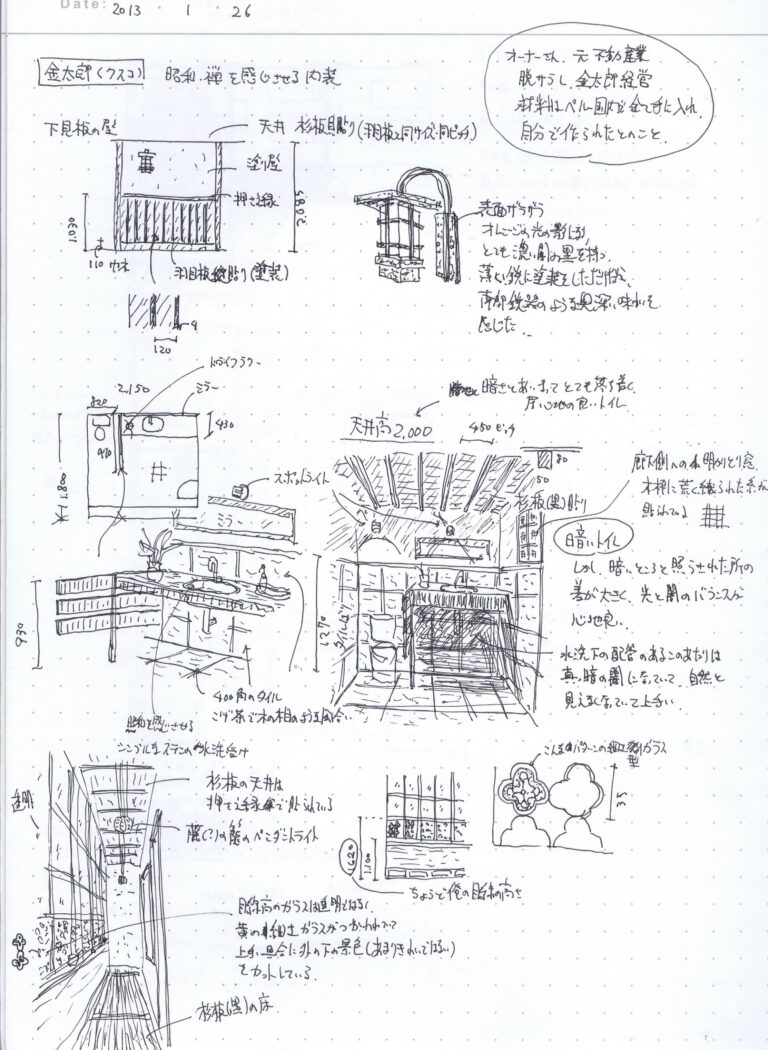 Date: 2013 · 1 · 26
金太郎(クスコ) 昭和、禅を感じさせる内装
オーナーさん、元不動産業
脱サラし、金太郎経営
材料はペルー国内で全て手に入れ、
自分で作られたとのこと。
下見板の壁
天井 杉板目貼り(羽目板と同サイズ・同ピッチ)
塗り壁
押さえ縁
1,030
2,085
110
羽目板縦貼り(塗装)
9
120
表面ザラザラ
オレンジの光の影になり、
とても濃い闇の黒を持つ。
薄い鉄に塗装をしただけだが、
南部鉄器のような奥深い味わいを
感じた。
ドライフラワー
2,150
ミラー
820
430
910
1,800
暗さとあいまってとても落ち着く、
居心地の良いトイレ
天井高2,000
450ピッチ
80
50
杉板(黒)貼り
スポットライト
ミラー
廊下側への小明かりとり窓
木枠に荒く織られた糸が
貼られている
暗いトイレ
しかし、暗いところと照らされた所の
差が大きく、光と闇のバランスが
心地良い。
930
1,270
400角のタイル
こげ茶で木の相のような風合い
昭和を感じさせる
シンプルなステンの水洗受け
水洗下の配管のあるこのあたりは
真っ暗の闇になっていて、自然と
見えなくなっていて上手い。
こんなパターンの型ガラス
35
透明
杉板の天井は
押さえ縁で貼られている
籐(?)の籠のペンダントライト
1,620
1,100
ちょうど俺の目線の高さ
目線高のガラスは透明ではなく、
黄の細工ガラスがつかわれていて
上手い具合に外の下の景色(あまりきれいではない)
をカットしている。
杉板(黒)の床